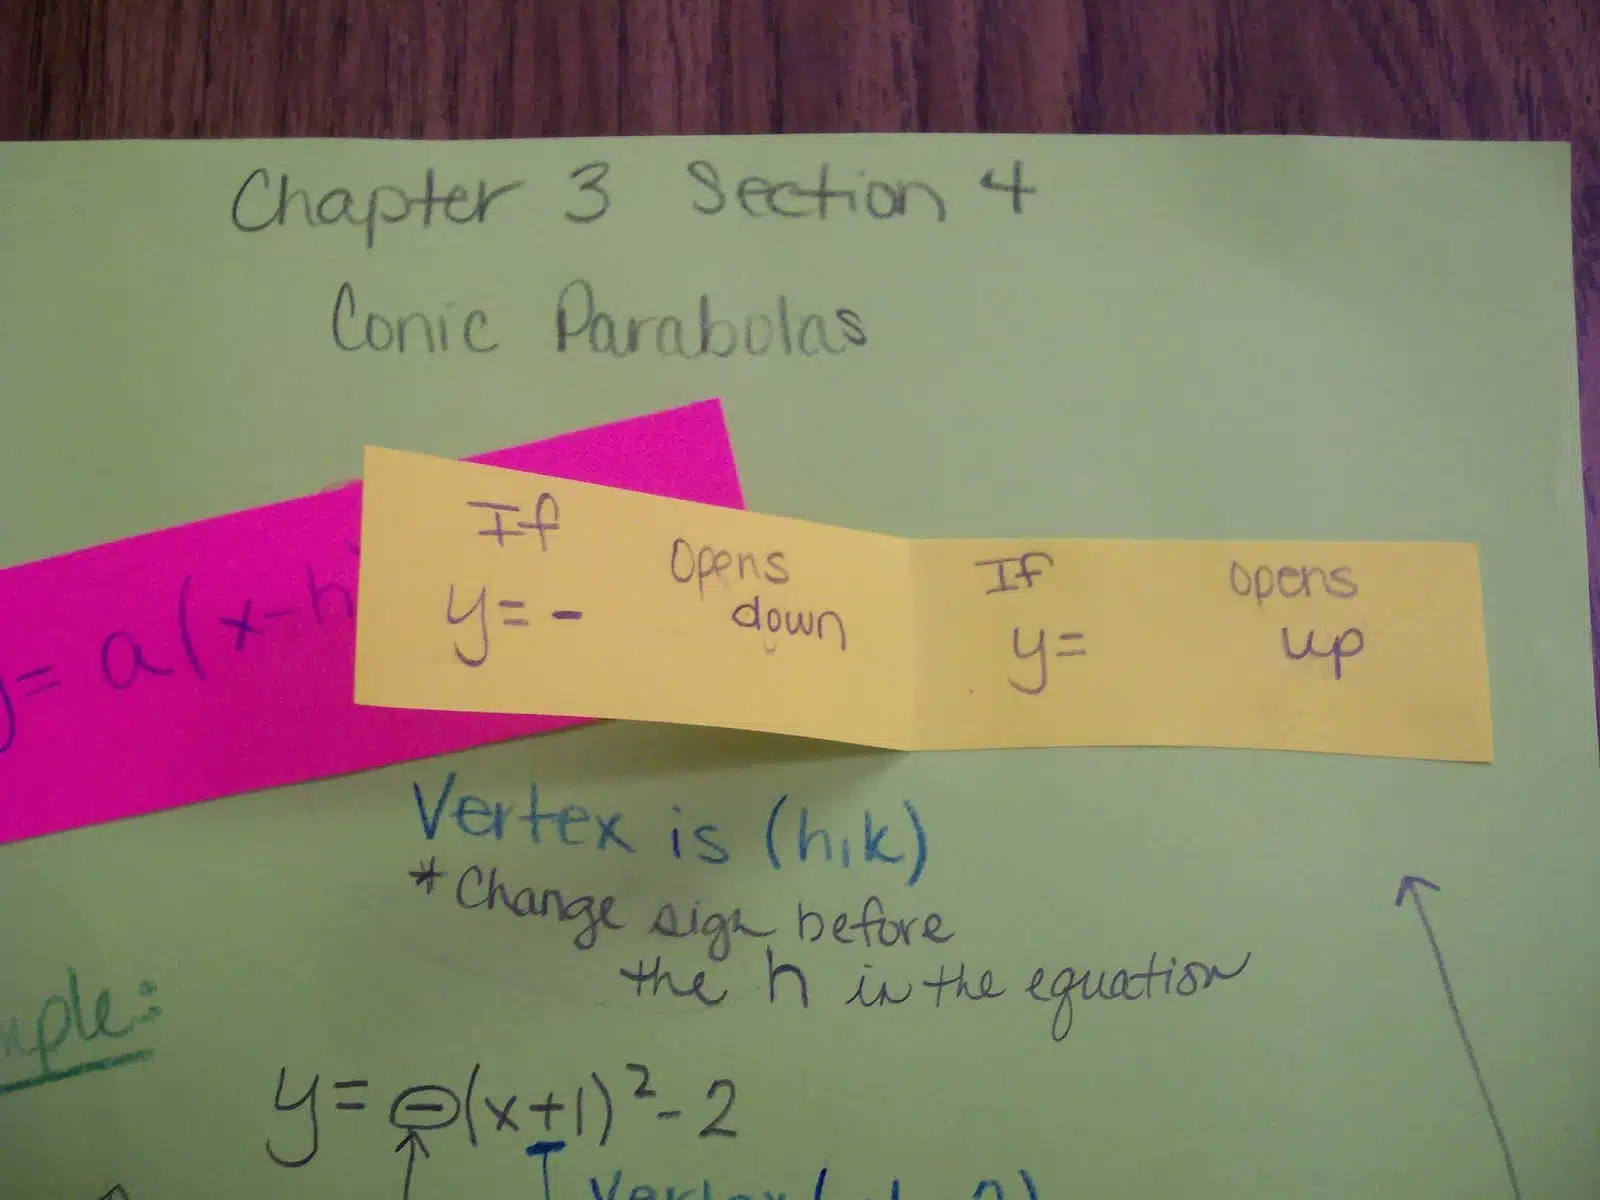 Chapter 3 Section 4
Conic Parabolas
y= a(x-h
If
y= -
Opens
down
If
y=
Opens
up
Vertex is (h,k)
*Change sign before
the h in the equation
mple:
y= -(x+1)²-2
Vertex (